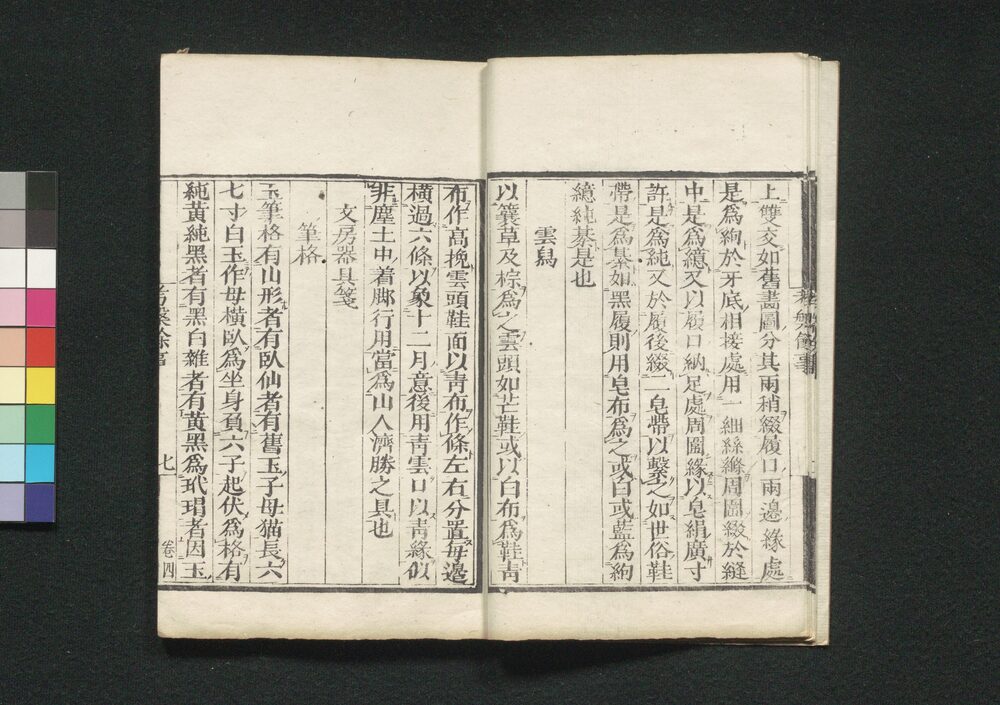 上雙交如舊畫圖分其兩稍綴履口兩邊緣處
是爲絇於牙底相接處用一細絲縧周圍綴於縫
中是爲繶又以履口納足處周圍緣以皂絹廣寸
許是爲純又於履後綴二皂帶以繫之如世俗鞋
帶是爲綦如黑履則用皂布爲之或白或藍爲絇
繶純綦是也
雲舄
以蓑草及棕爲之雲頭如芒鞋或以白布爲鞋青
布作高挽雲頭鞋面以青布作條左右分置每邊
橫過六條以象十二月意後用青雲口以青緣似
非塵土中着脚行用當爲山人濟勝之具也
文房器具箋
筆格
玉筆格有山形者有臥仙者有舊玉子母猫長六
七寸白玉作母橫臥爲坐身負六子起伏爲格有
純黃純黑者有黑白雜者有黃黑爲玳瑁者因玉
考槃餘事
七
卷四